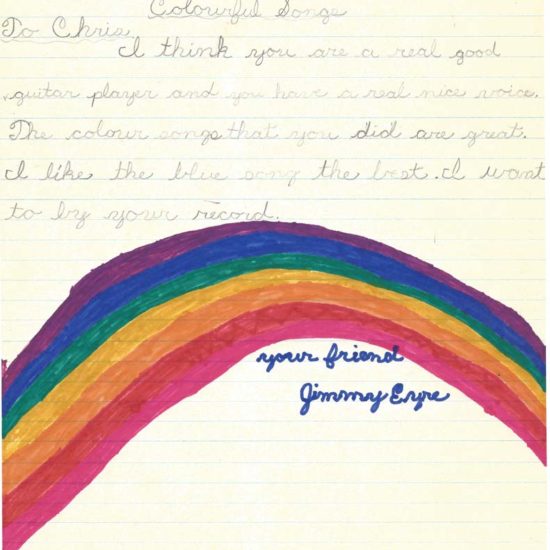 Colourful Songs
To Chris
I think you are a real good
guitar player and you have a real nice voice.
The colour songs that you did are great.
I like the blue song the best. I want
to by your record.
your friend
Jimmy Eyre